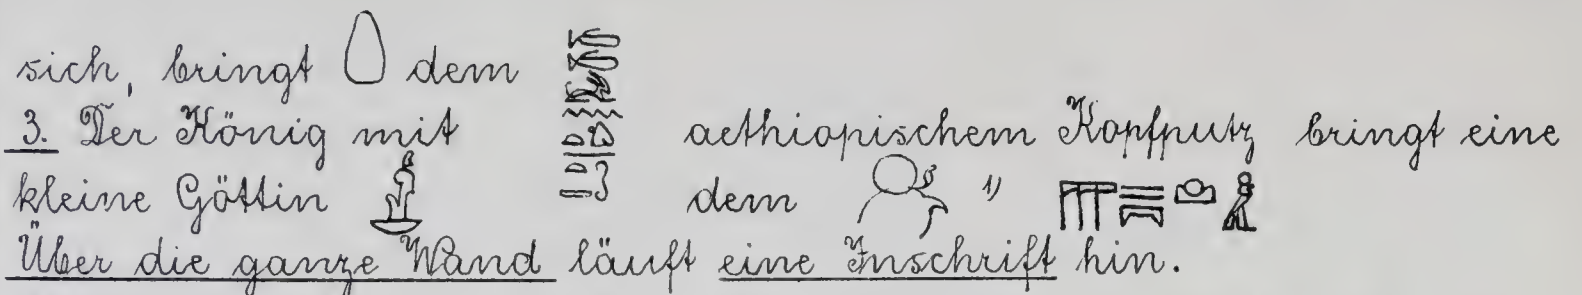 sich, bringt dem
3. Der König mit aethiopischem Kopfputz bringt eine
kleine Göttin dem 1)
Über die ganze Wand läuft eine Inschrift hin.